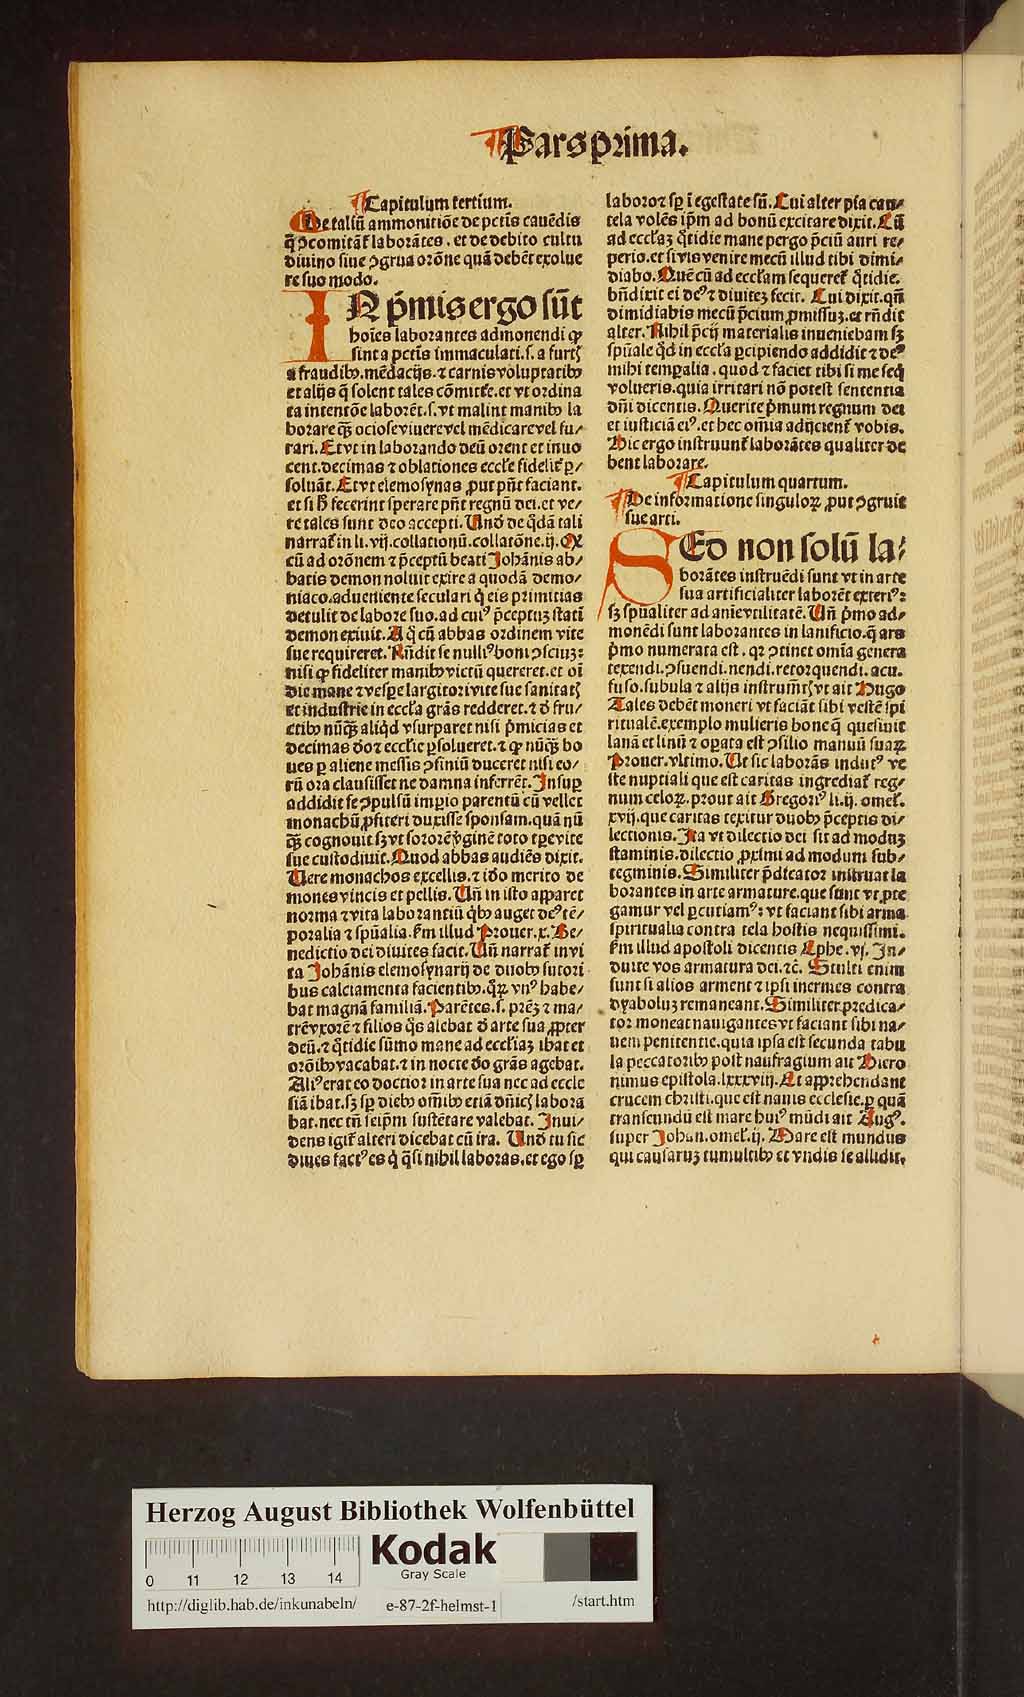 ¶Pars prima.
¶Capitulum tertium.
De taliū ammonitiōe de pctīs cauēdis
q̄ ꝯcomitāt̄ laborātes. et de debito cultu
diuino siue ꝯgrua orōne quā debēt exolue
re suo modo.
IN p̄mis ergo sūt
hoīes laborantes admonendi ꝙ
sint a pctīs immaculati. s. a furtꝭ
a fraudibꝰ. mēdacijs. ⁊ carnis voluptatibꝰ
et alijs q̄ solent tales cōmitt̄e. et vt ordina
ta intentōe laborēt. s. vt malint manibꝰ la
borare qꝫ̄ ociose viuere vel mēdicare vel fu⸗
rari. Et vt in laborando deū orent et inuo
cent. decimas ⁊ oblationes eccl̄e fidelit̄ ꝑ⸗
soluāt. Et vt elemosynas ꝓut pn̄t faciant.
et si h̄ fecerint sperare pn̄t regnū dei. et ve⸗
re tales sunt deo accepti. Unď de q̄dā tali
narrat̄ in li. vij. collationū. collatōne. ij. Qꝫ
cū ad orōnem ⁊ p̄ceptū beati Johānis ab⸗
batis demon noluit exire a quodā demo⸗
niaco. adueniente seculari q̇ eis primitias
detulit de labore suo. ad cuiꝰ p̄ceptuꝫ statī
demon exiuit. A q̇ cū abbas ordinem vite
sue requireret. Rn̄dit se nulliꝰ boni ꝯsciuꝫ:
nisi ꝙ fideliter manibꝰ victū quereret. et oī
die mane ⁊ vespe largitori vite sue sanitatꝭ
et industrie in eccl̄a grās redderet. ⁊ ď fru⸗
ctibꝰ nūqꝫ̄ aliqď vsurparet nisi p̄micias et
decimas ďo ⁊ eccl̄ie ꝑsolueret. ⁊ ꝙ nūqꝫ̄ bo
ues ꝑ aliene messis ꝯfiniū duceret nisi eo⸗
rū ora clausisset ne damna inferrēt. Insuꝑ
addidit se ꝯpulsū imꝑio parentū cū vellet
monachū ꝓfiteri duxisse sponsam. quā nū
qꝫ̄ cognouit sꝫ vt sororē v̓ginē toto tꝑe vite
sue custodiuit. Quod abbas audiēs dixit.
Uere monachos excellis. ⁊ iďo merito de
mones vincis et pellis. Un̄ in isto apparet
norma ⁊ vita laborantiū q̇bꝰ auget deꝰ tē⸗
poralia ⁊ spūalia. km̄ illud Prouer. x. Be⸗
nedictio dei diuites facit. Un̄ narrat̄ in vi
ta Johānis elemosynarij de duobꝰ sutori
bus calciamenta facientibꝰ. q̊ꝝ vnꝰ habe⸗
bat magnā familiā. Parētes. s. prēꝫ ⁊ ma⸗
trē vxorē ⁊ filios q̊s alebat ď arte sua ꝓpter
deū. ⁊ q̊tidie sūmo mane ad eccl̄iaꝫ ibat et
orōibꝰ vacabat. ⁊ in nocte ďo grās agebat.
Aliꝰ erat eo doctior in arte sua nec ad eccle
siā ibat. sꝫ sꝑ diebꝰ om̄ibꝰ etiā dn̄icꝭ labora
bat. nec tn̄ seip̄m sustētare valebat. Inui⸗
dens igit̄ alteri dicebat cū ira. Unď tu sic
diues factꝰ es q̇ q̊si nihil laboras. et ego sꝑ
laboro ⁊ sꝑ ī egestate sū. Cui alter pīa cau⸗
tela volēs ip̄m ad bonū excitare dixit. Cū
ad eccl̄aꝫ q̊tidie mane pergo p̄ciū auri re⸗
perio. et si vis venire mecū illud tibi dimi⸗
diabo. Quē cū ad eccl̄am sequeret̄ q̊tidie.
bn̄dixit ei deꝰ ⁊ diuiteꝫ fecit. Cui dixit. qn̄
dimidiabis mecū p̄cium ꝓmissuꝫ. et rn̄dit
alter. Nihil p̄cij materialis inueniebam sꝫ
spūale q̊d in eccl̄a ꝑcipiendo addidit ⁊ deꝰ
mihi temꝑalia. quod ⁊ faciet tibi si me seq̇
volueris. quia irritari nō potest sententia
dn̄i dicentis. Querite p̄mum regnum dei
et iusticiā eiꝰ. et hec om̄ia adijcient̄ vobis.
Hic ergo instruunt̄ laborātes qualiter de
bent laborare.
¶Capitulum quartum.
¶De informatione singuloꝝ ꝓut ꝯgruit
sue arti.
SEd non solū la⸗
borātes instruēdi sunt vt in arte
sua artificialiter laborēt exteriꝰ:
sꝫ spūaliter ad anīe vtilitatē. Un̄ p̄mo ad⸗
monēdi sunt laborantes in lanificio. q̄ ars
p̄mo numerata est. qꝛ ꝯtinet om̄ia genera
texendi. ꝯsuendi. nendi. retorquendi. acu.
fuso. subula ⁊ alijs instrum̄tꝭ vt ait Hugo
Tales debēt moneri vt faciāt sibi vestē spi
ritualē. exemplo mulieris bone q̄ quesiuit
lanā et linū ⁊ oꝑata est ꝯsilio manuū suaꝝ
Prouer. vltimo. Ut sic laborās indutꝰ ve
ste nuptiali que est caritas ingrediat̄ reg⸗
num celoꝝ. prout ait Gregoriꝰ li. ij. omel̄.
xvij. que caritas texitur duobꝰ p̄ceptis di⸗
lectionis. Ita vt dilectio dei sit ad moduꝫ
staminis. dilectio ꝓximi ad modum sub⸗
tegminis. Similiter p̄dicator instruat la
borantes in arte armature. que sunt vt ꝓte
gamur vel ꝑcutiamꝰ: vt faciant sibi arma
spiritualia contra tela hostis nequissimi.
km̄ illud apostoli dicentis Ephe. vj. In⸗
duite vos armatura dei. ⁊c̄. Stulti enim
sunt si alios arment ⁊ ipsi inermes contra
dyaboluꝫ remaneant. Similiter predica⸗
tor moneat nauigantes vt faciant sibi na⸗
uem penitentie. quia ipsa est secunda tabu
la peccatoribꝰ post naufragium ait Hiero
nimus epistola. lxxxviij. Et apprehendant
crucem christi. que est nauis ecclesie. ꝑ quā
transeundū est mare huiꝰ mūdi ait Augꝰ.
super Johan. omel̄. ij. Mare est mundus
qui causaruꝫ tumultibꝰ et vndis se allidit.
Herzog August Bibliothek Wolfenbüttel
Kodak
Gray Scale
0 11 12 13 14
http://diglib.hab.de/inkunabeln/ e-87-2f-helmst-1 /start.htm